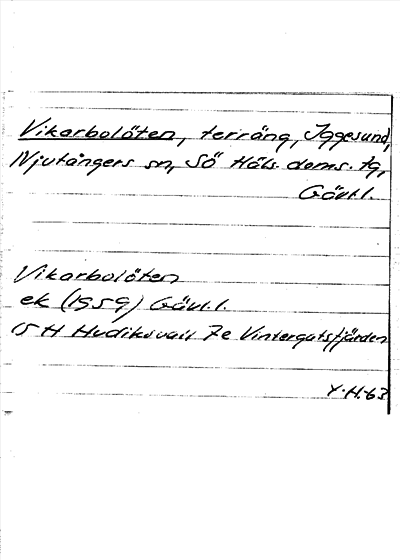 Vikarbolöten, terräng, Iggesund,
Njutångers sn, Sö Häls. doms. tg,
Gävl.l.
Vikarbolöten
ek (1959) Gävl.l.
15 H Hudiksvall 7e Vintergatsfjärden
Y.H.63